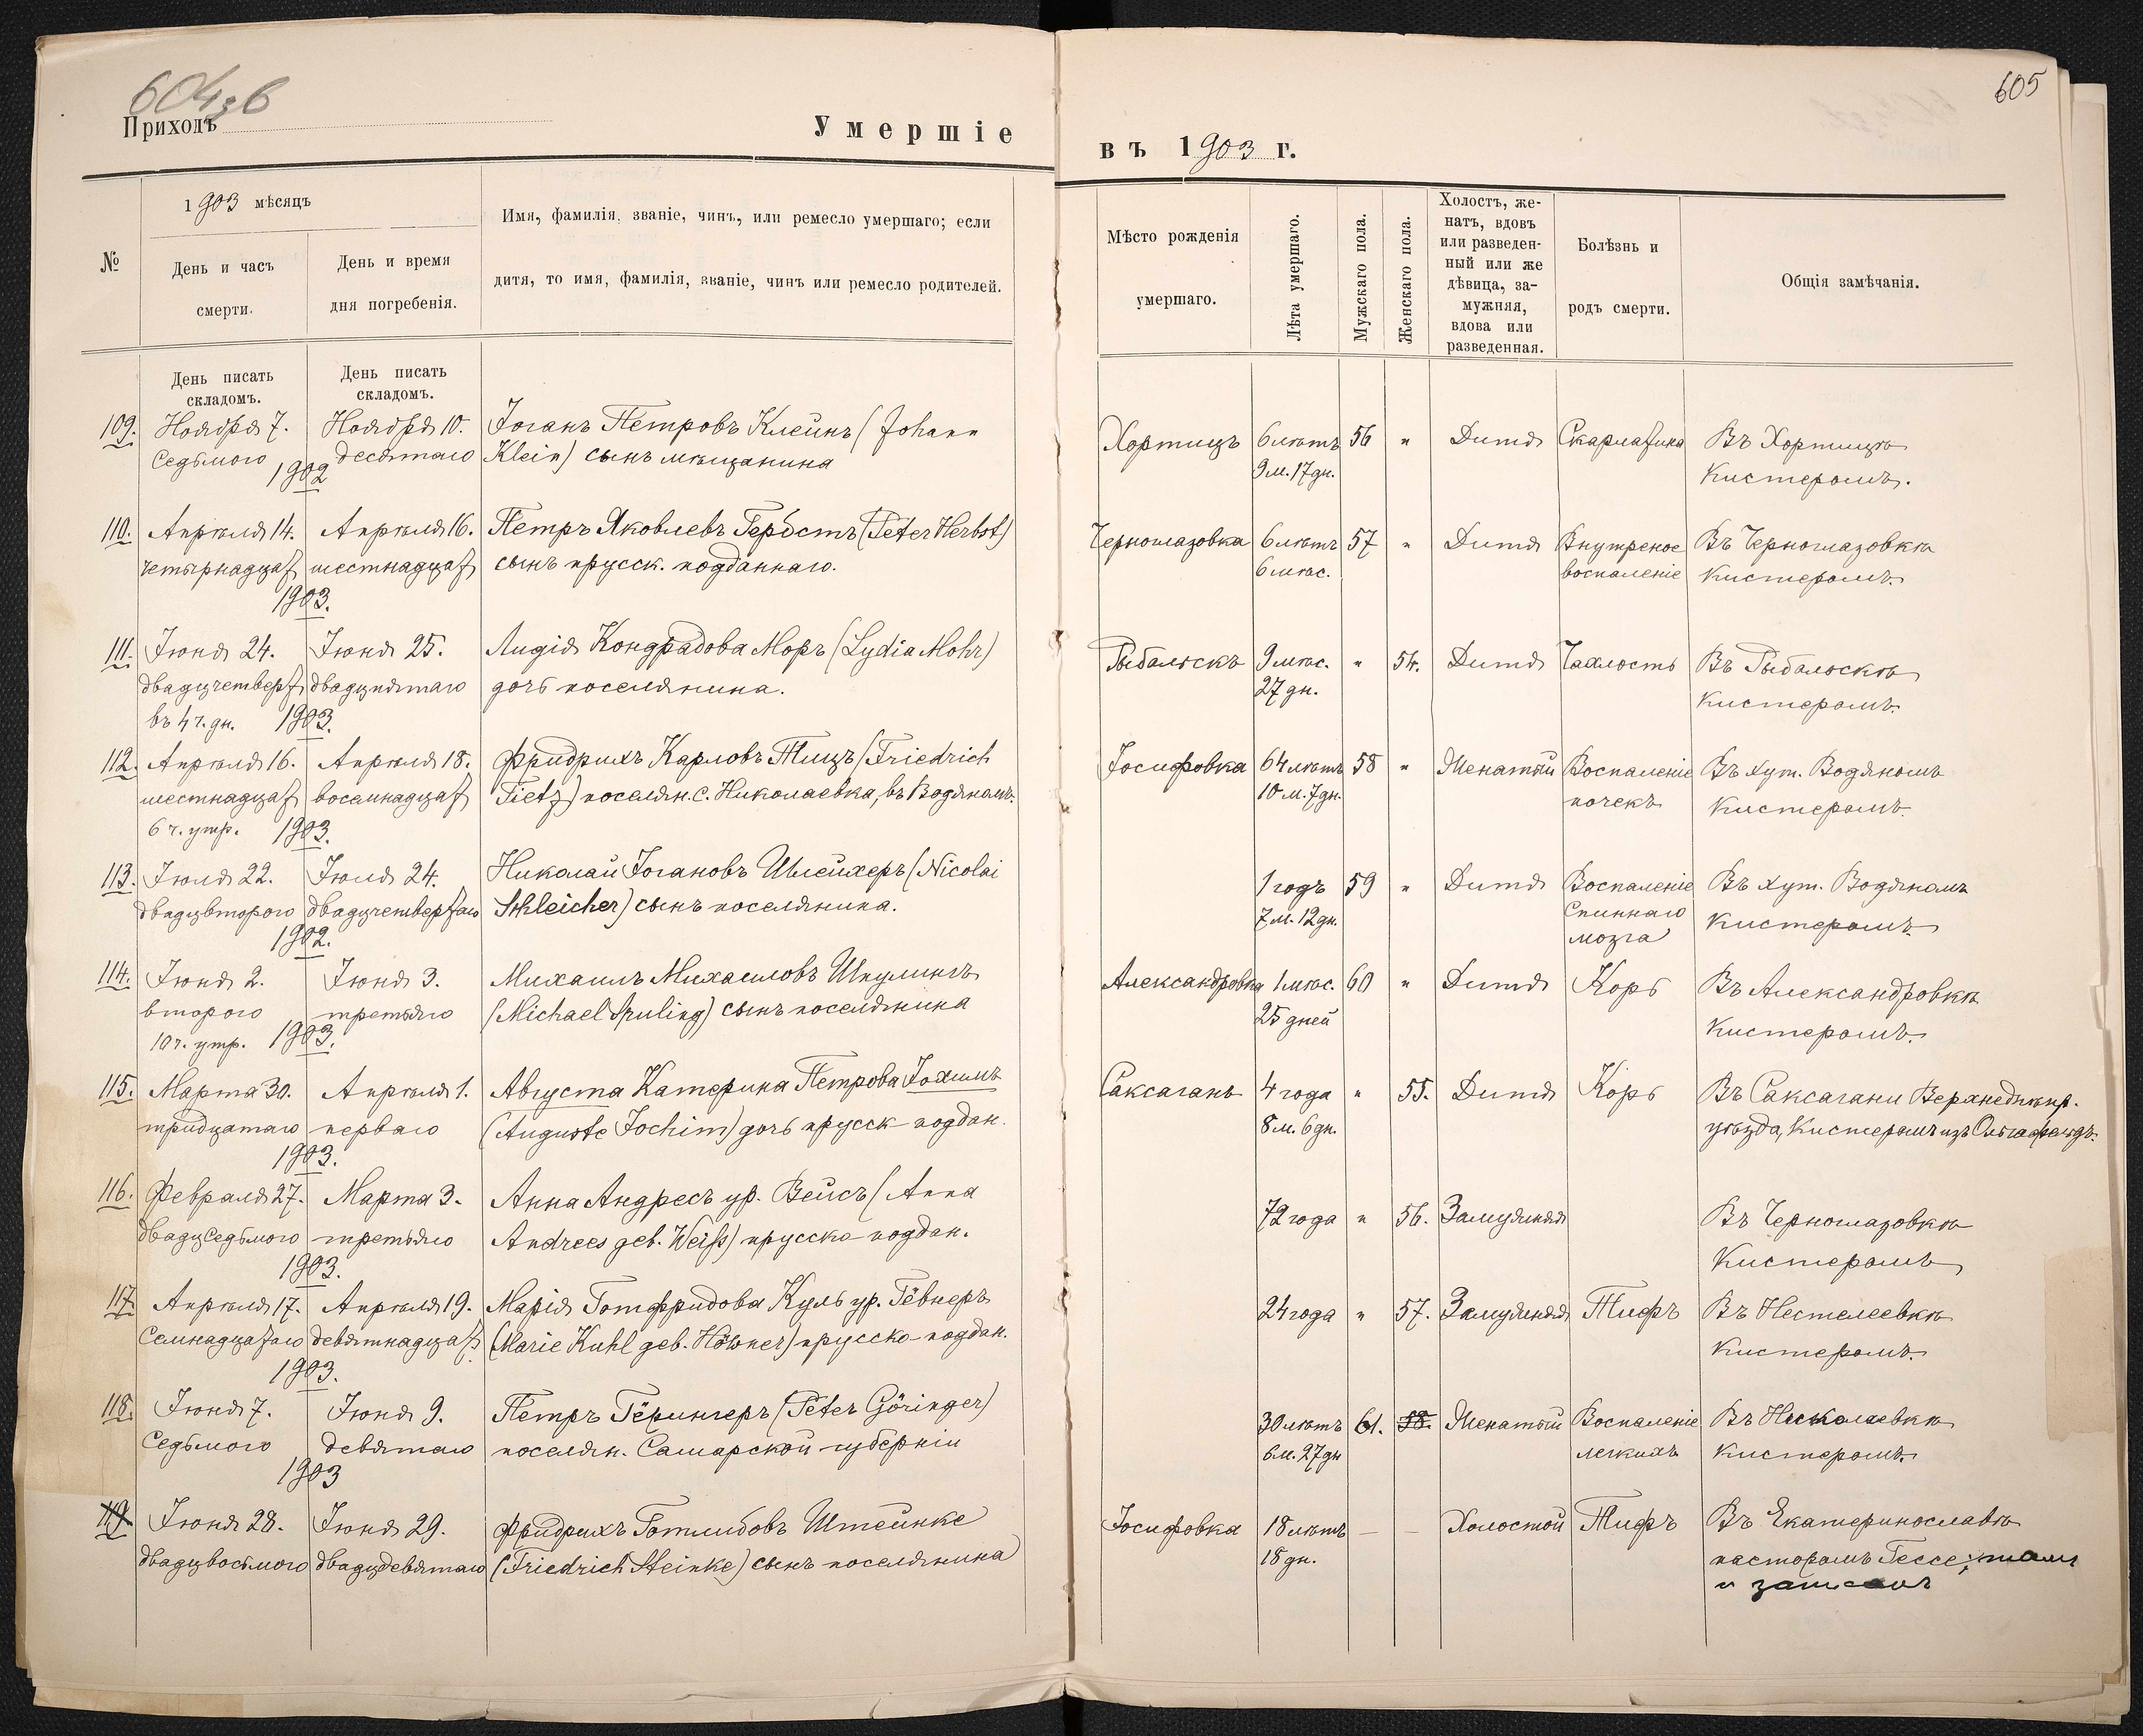 604 зв
Приходъ
Умершіе
въ 1903 г.
605
№
1903 мѣсяцъ
День и часъ
смерти.
День и время
дня погребенія.
Имя, фамилія, званіе, чинъ, или ремесло умершаго; если
дитя, то имя, фамилія, званіе, чинъ или ремесло родителей.
Мѣсто рожденія
умершаго.
Лѣта умершаго.
Мужскаго пола.
Женскаго пола.
Холостъ, же-
натъ, вдовъ
или разведен-
ный или же
дѣвица, за-
мужняя,
вдова или
разведенная.
Болѣзнь и
родъ смерти.
Общія замѣчанія.
День писать
складомъ.
День писать
складомъ.
109. Ноября 7. Ноября 10. Іоганъ Петровъ Клейнъ (Johann Хортицъ 6 лѣтъ 56 " Дитя Скарлатина Въ Хортицѣ
Седьмого десятаго Klein) сынъ мѣщанина 9 м. 17 дн. Кистеромъ.
1902
110. Апрѣля 14. Апрѣля 16. Петръ Яковлевъ Гербстъ (Peter Herbst) Черноглазовка 6 лѣтъ 57 " Дитя Внутреное Въ Черноглазовкѣ
четырнадцат шестнадцат сынъ прусск. подданнаго. 6 мѣс. воспаленіе Кистеромъ.
1903.
111. Іюня 24. Іюня 25. Лидія Кондрадова Моръ (Lydia Mohr) Рыбальскъ 9 мѣс. " 54. Дитя Чахлость Въ Рыбальскѣ
двадцчетверт двадцпятаго дочь поселянина. 27 дн. Кистеромъ.
въ 4 ч. дн. 1903.
112. Апрѣля 16. Апрѣля 18. Фридрихъ Карловъ Тицъ (Friedrich Іосифовка 64 лѣтъ 58 " Женатый Воспаленіе Въ хут. Водяномъ
шестнадцат восемнадцат Tietz) поселян. с. Николаевка, въ Водяномъ. 10 м. 7 дн. почекъ Кистеромъ.
6 ч. утр. 1903.
113. Іюля 22. Іюля 24. Николай Іогановъ Шлейхеръ (Nicolai 1 годъ 59 " Дитя Воспаленіе Въ хут. Водяномъ
двадцвторого двадцчетвертаго Schleicher) сынъ поселянина. 7 м. 12 дн. Спиннаго Кистеромъ.
1902. мозга
114. Іюня 2. Іюня 3. Михаилъ Михаиловъ Шпулингъ Александровка 1 мѣс. 60 " Дитя Корь Въ Александровкѣ
второго третьяго (Michael Spuling) сынъ поселянина 25 дней Кистеромъ.
10 ч. утр. 1903.
115. Марта 30. Апрѣля 1. Августа Катерина Петрова Іохимъ Саксагань 4 года " 55. Дитя Корь Въ Саксагани Верхнеднѣпр.
тридцатаго перваго (Auguste Jochim) дочь прусск поддан. 8 м. 6 дн. уѣзда, Кистеромъ изъ Ольгафельдъ.
1903.
116. Февраля 27. Марта 3. Анна Андресъ ур. Вейсъ (Anna 72 года " 56. Замужняя Въ Черноглазовкѣ
двадцседьмого третьяго Andrees geb. Weiß) прусско поддан. Кистеромъ
1903.
117. Апрѣля 17. Апрѣля 19. Марія Готфридова Куль ур. Гёвнеръ 24 года " 57. Замужняя Тифъ Въ Нестелеевкѣ
Семнадцатаго девятнадцат. (Marie Kuhl geb. Höwner) прусско-поддан. Кистеромъ.
1903.
118. Іюня 7. Іюня 9. Петръ Гёрингеръ (Peter Göringer) 30 лѣтъ 61. 58. Женатый Воспаленіе Въ Николаевкѣ
Седьмого девятаго поселян. Самарской губерніи 6 м. 27 дн легкихъ Кистеромъ.
1903
119. Іюня 28. Іюня 29. Фридрихъ Готлибовъ Штейнке Іосифовка 18 лѣтъ — — Холостой Тифъ Въ Екатеринославѣ
двадцвосьмого двадцдевятаго (Friedrich Steinke) сынъ поселянина 18 дн. пасторомъ Гессе; тамъ
и записанъ